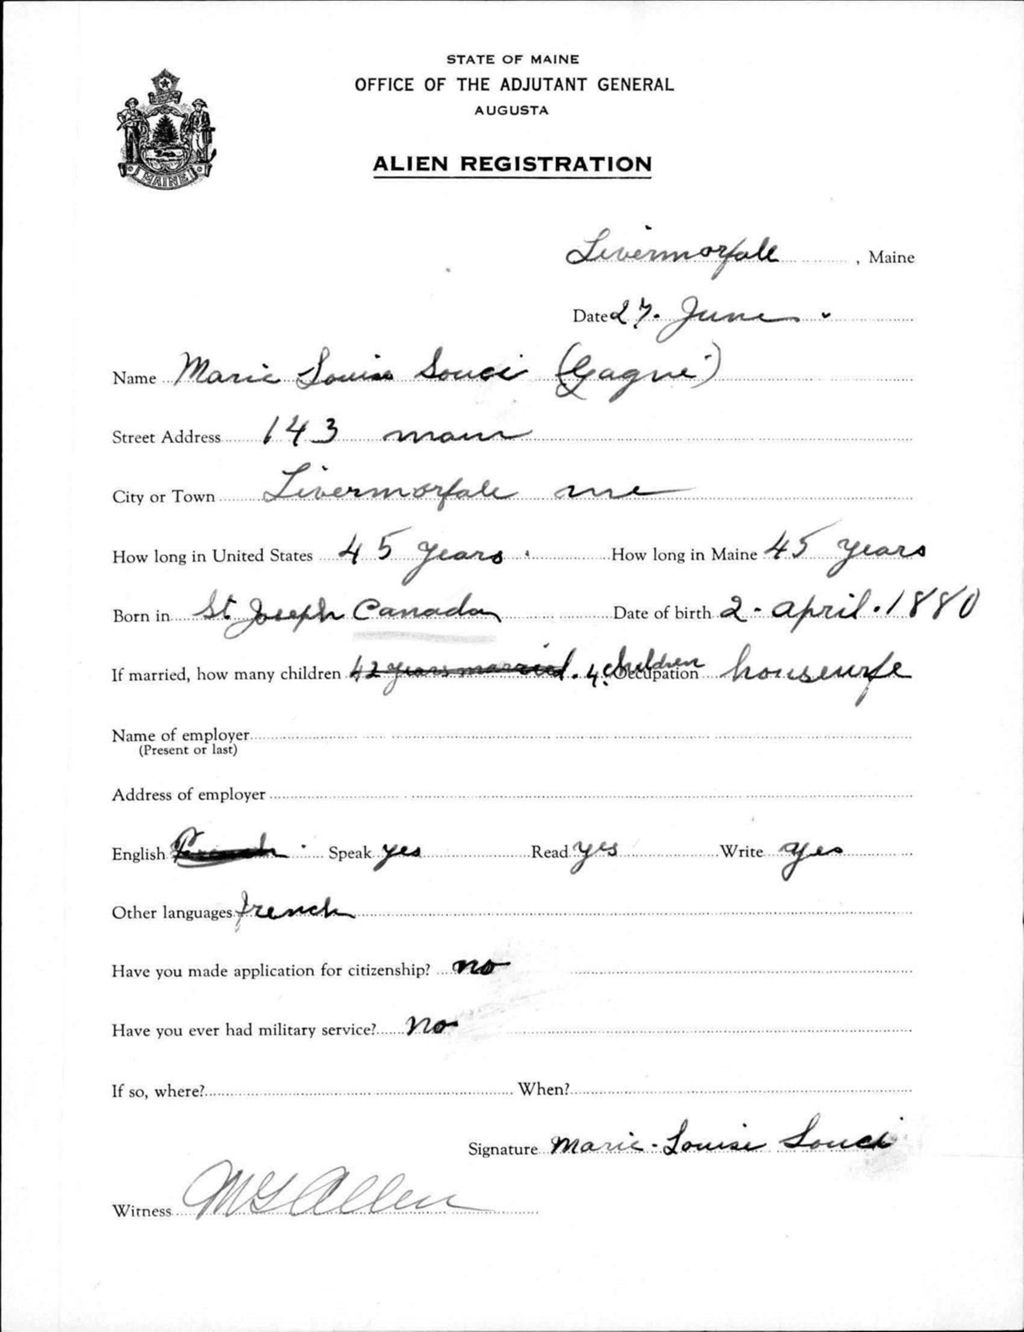 STATE OF MAINE
OFFICE OF THE ADJUTANT GENERAL
AUGUSTA
ALIEN REGISTRATION
MAINE
Livermorfale, Maine
Date 27. June
Name Marie Louise Souci (Gagne)
Street Address 143 main
City or Town Livermorfale me
How long in United States 45 years How long in Maine 45 years
Born in St Joseph Canada Date of birth 2. april. 1880
If married, how many children 42 years married. 4 children Occupation housewife
Name of employer
(Present or last)
Address of employer
English French Speak yes Read yes Write yes
Other languages french
Have you made application for citizenship? no
Have you ever had military service? no
If so, where? When?
Signature Marie-Louise Souci
Witness Allen